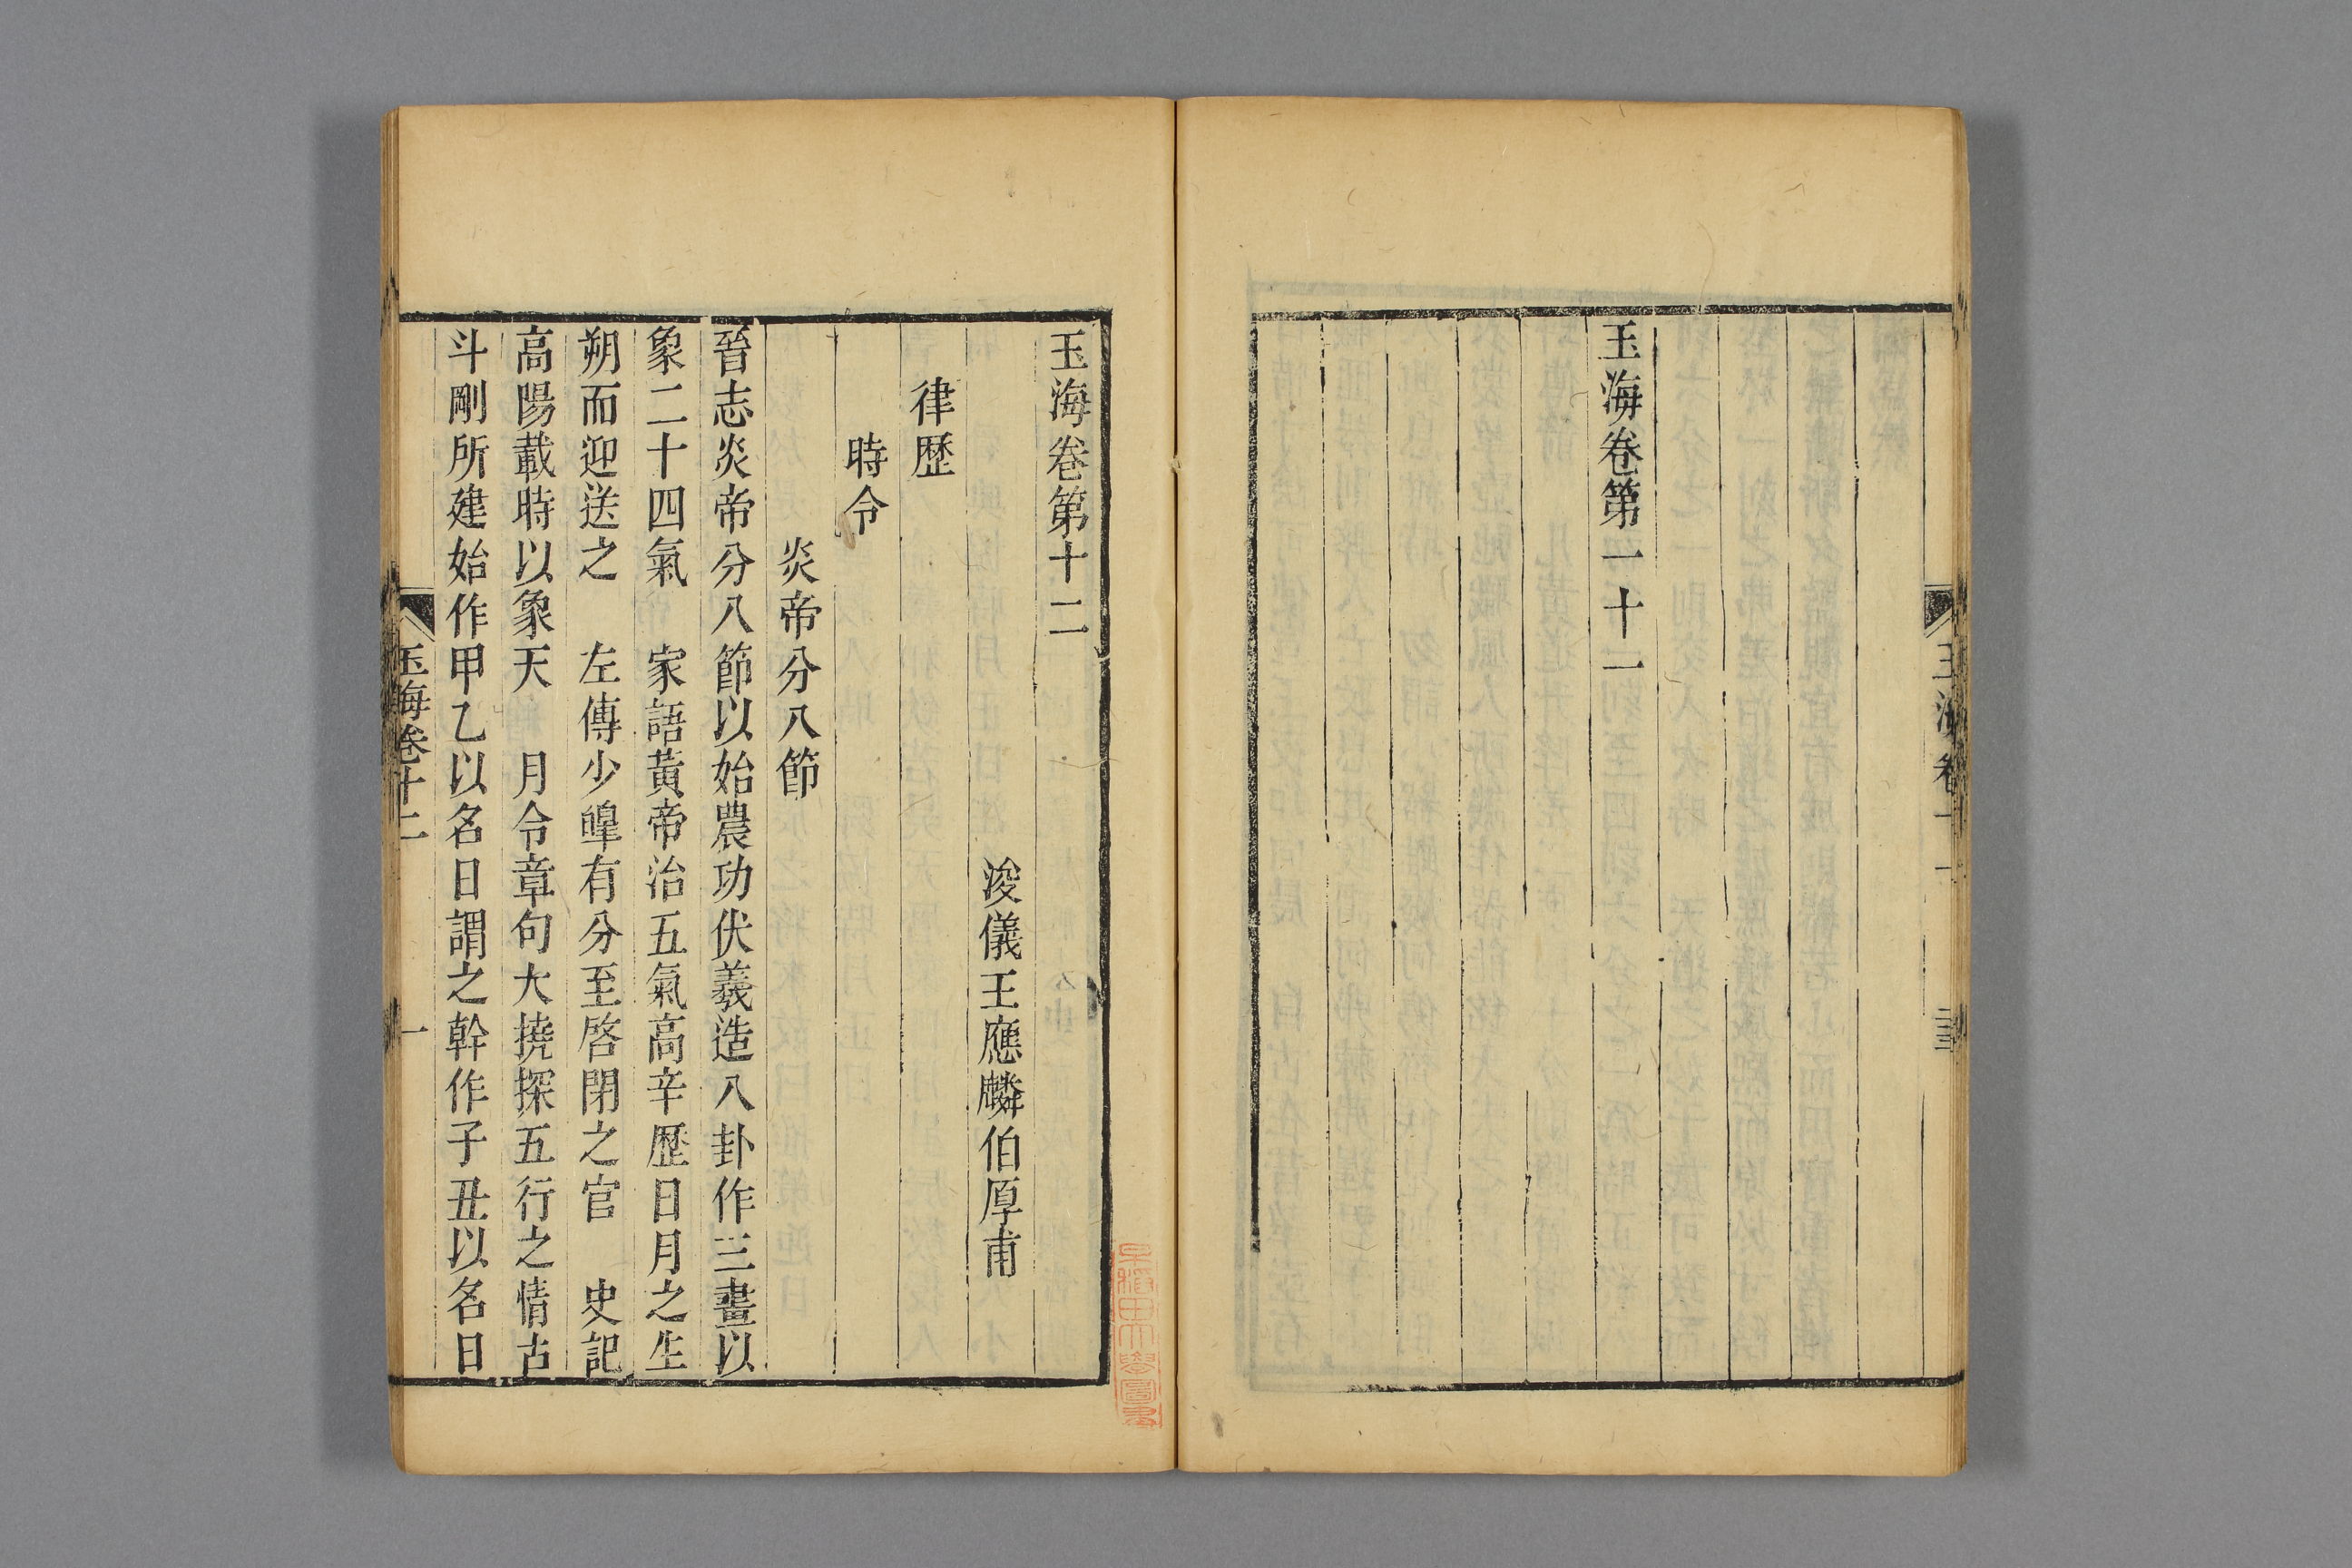 玉海卷第一十一
玉海卷第十二
浚儀王應麟伯厚甫
律歷
時令
炎帝分八節
晉志炎帝分八節以始農功伏羲造八卦作三畫以
象二十四氣　家語黃帝治五氣高辛歷日月之生
朔而迎送之　左傳少皥有分至啓閉之官　史記
高陽載時以象天　月令章句大撓探五行之情古
斗剛所建始作甲乙以名日謂之幹作子丑以名日
玉海卷十二
一